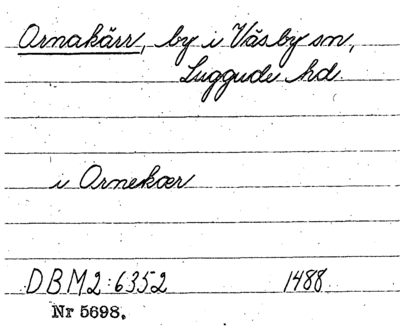 Ornakärr, by i Väsby sn,
Luggude hd.
i Ornekær
DBM2:6352 1488
Nr 5698.